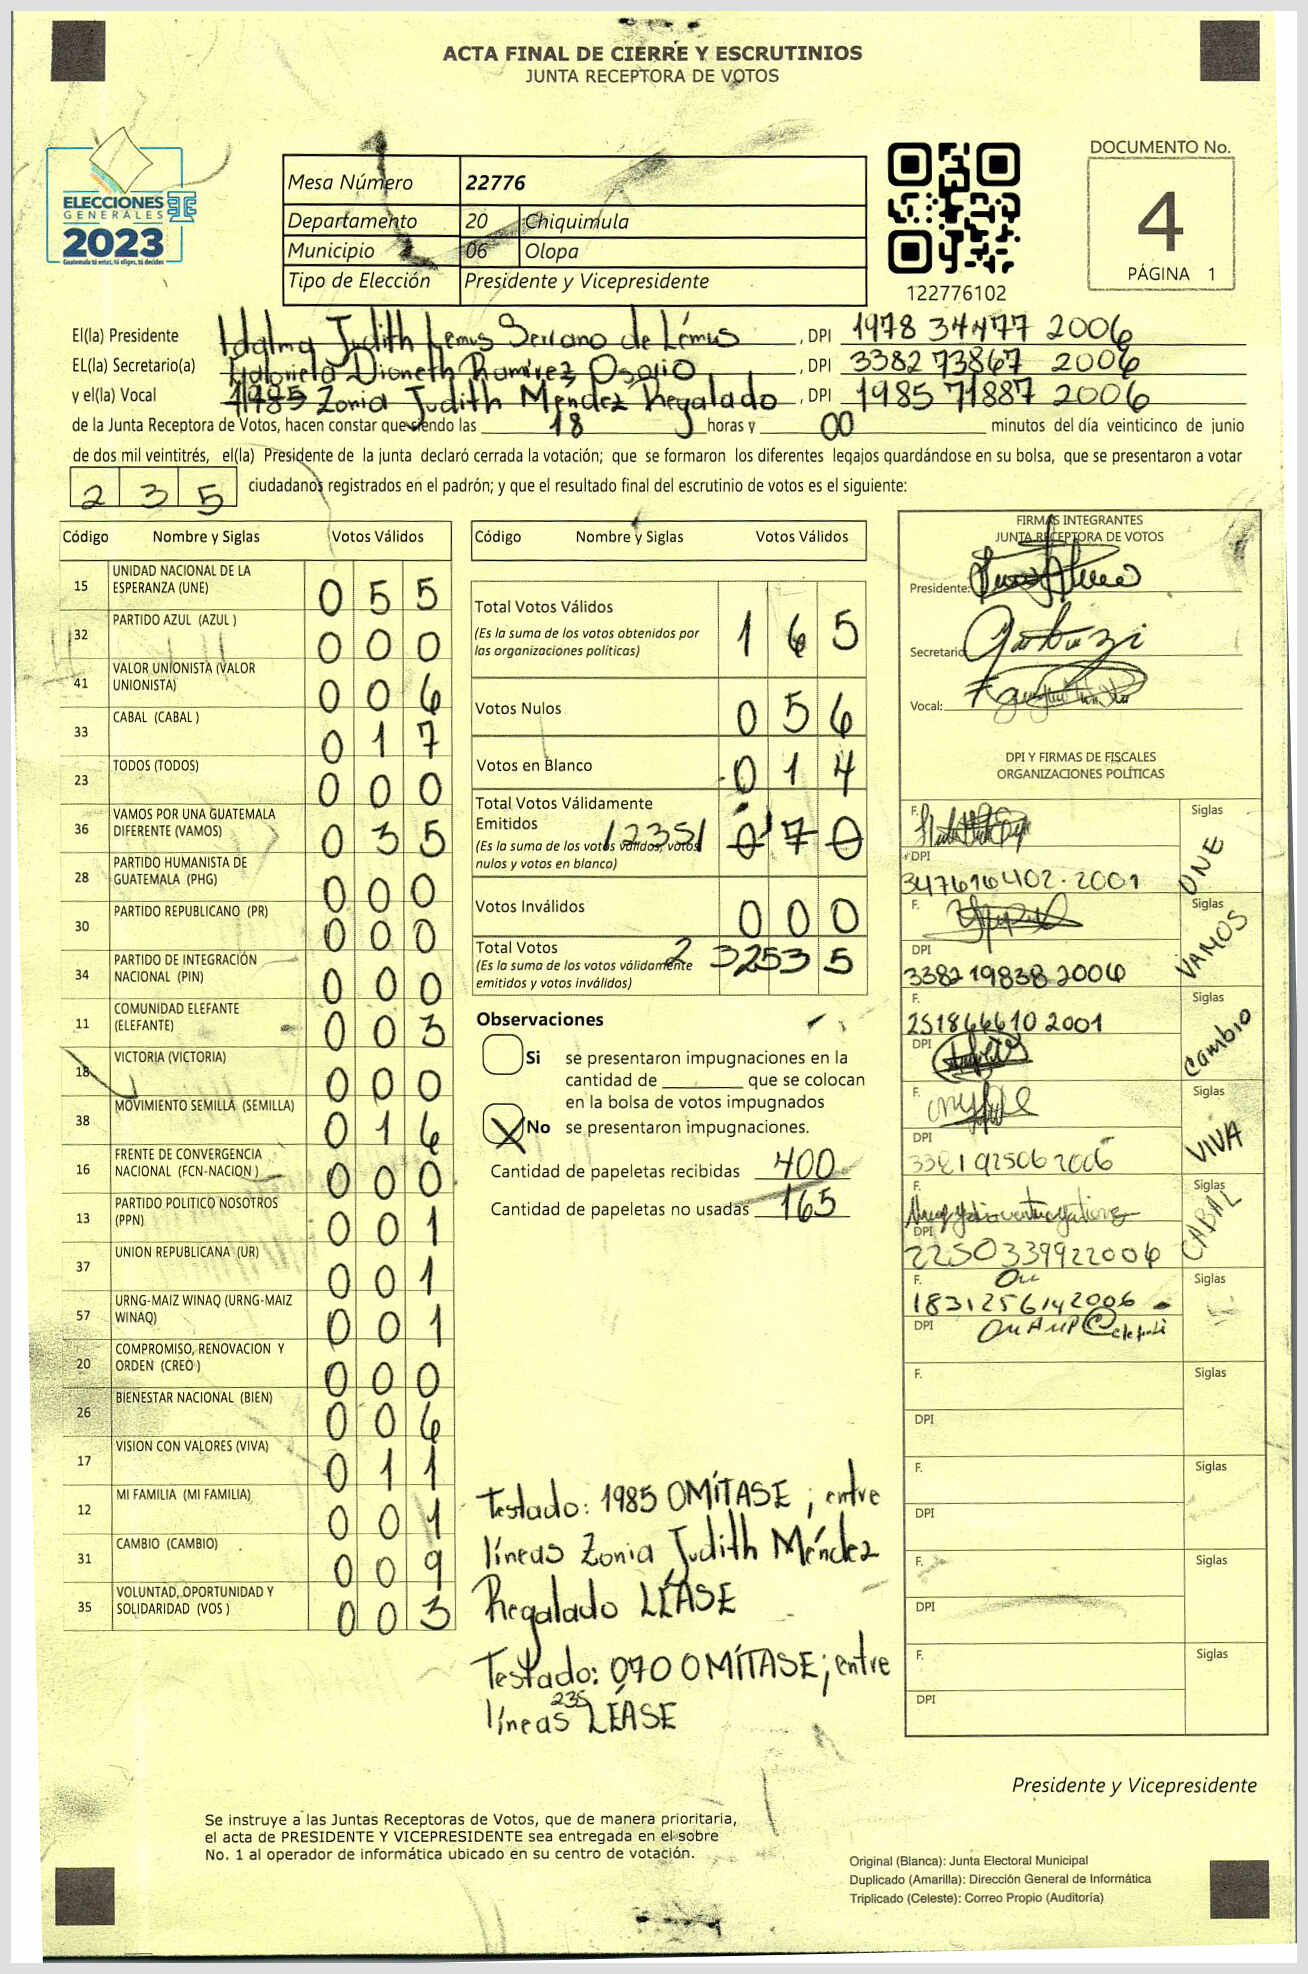 ACTA FINAL DE CIERRE Y ESCRUTINIOS
JUNTA RECEPTORA DE VOTOS
ELECCIONES
GENERALES
2023
Guatemala tú estas, tú eliges, tú decides
Mesa Número 22776
Departamento 20 Chiquimula
Municipio 06 Olopa
Tipo de Elección Presidente y Vicepresidente
122776102
DOCUMENTO No.
4
PÁGINA 1
El(la) Presidente Idalma Judith Lemus Serrano de Lémus , DPI 1978 34477 2006
EL(la) Secretario(a) Gabriela Dianeth Ramírez Osorio , DPI 3382 73867 2006
y el(la) Vocal 1985 Zonia Judith Méndez Regalado , DPI 1985 71887 2006
de la Junta Receptora de Votos, hacen constar que siendo las 18 horas y 00 minutos del día veinticinco de junio
de dos mil veintitrés, el(la) Presidente de la junta declaró cerrada la votación; que se formaron los diferentes legajos guardándose en su bolsa, que se presentaron a votar
235 ciudadanos registrados en el padrón; y que el resultado final del escrutinio de votos es el siguiente:
Código Nombre y Siglas Votos Válidos
15 UNIDAD NACIONAL DE LA ESPERANZA (UNE) 055
32 PARTIDO AZUL (AZUL ) 000
41 VALOR UNIONISTA (VALOR UNIONISTA) 006
33 CABAL (CABAL ) 017
23 TODOS (TODOS) 000
36 VAMOS POR UNA GUATEMALA DIFERENTE (VAMOS) 035
28 PARTIDO HUMANISTA DE GUATEMALA (PHG) 000
30 PARTIDO REPUBLICANO (PR) 000
34 PARTIDO DE INTEGRACIÓN NACIONAL (PIN) 000
11 COMUNIDAD ELEFANTE (ELEFANTE) 003
18 VICTORIA (VICTORIA) 000
38 MOVIMIENTO SEMILLA (SEMILLA) 016
16 FRENTE DE CONVERGENCIA NACIONAL (FCN-NACION ) 000
13 PARTIDO POLITICO NOSOTROS (PPN) 001
37 UNION REPUBLICANA (UR) 001
57 URNG-MAIZ WINAQ (URNG-MAIZ WINAQ) 001
20 COMPROMISO, RENOVACION Y ORDEN (CREO ) 000
26 BIENESTAR NACIONAL (BIEN) 006
17 VISION CON VALORES (VIVA) 011
12 MI FAMILIA (MI FAMILIA) 001
31 CAMBIO (CAMBIO) 009
35 VOLUNTAD, OPORTUNIDAD Y SOLIDARIDAD (VOS ) 003
Código Nombre y Siglas Votos Válidos
Total Votos Válidos 165
(Es la suma de los votos obtenidos por
las organizaciones políticas)
Votos Nulos 056
Votos en Blanco 014
Total Votos Válidamente
Emitidos 235 070
(Es la suma de los votos válidos, votos
nulos y votos en blanco)
Votos Inválidos 000
Total Votos
(Es la suma de los votos válidamente
emitidos y votos inválidos)
Observaciones
Si se presentaron impugnaciones en la
cantidad de que se colocan
en la bolsa de votos impugnados
X No se presentaron impugnaciones.
Cantidad de papeletas recibidas 400
Cantidad de papeletas no usadas 165
Testado: 1985 OMÍTASE ; entre
líneas Zonia Judith Méndez
Regalado LÉASE
Testado: 070 OMÍTASE; entre
líneas 235 LÉASE
FIRMAS INTEGRANTES
JUNTA RECEPTORA DE VOTOS
Presidente:
Secretario
Vocal:
DPI Y FIRMAS DE FISCALES
ORGANIZACIONES POLÍTICAS
F. Siglas UNE
DPI
347616402.2001
F. Siglas VAMOS
DPI
3382 19838 2006
F. Siglas Cambio
251866610 2001
DPI
F. Siglas VIVA
DPI
3381 92506 2006
F. Siglas CABAL
DPI
2250339922006
F. Siglas
1831256142006
DPI
F. Siglas
DPI
F. Siglas
DPI
F. Siglas
DPI
F. Siglas
DPI
Presidente y Vicepresidente
Se instruye a las Juntas Receptoras de Votos, que de manera prioritaria,
el acta de PRESIDENTE Y VICEPRESIDENTE sea entregada en el sobre
No. 1 al operador de informática ubicado en su centro de votación.
Original (Blanca): Junta Electoral Municipal
Duplicado (Amarilla): Dirección General de Informática
Triplicado (Celeste): Correo Propio (Auditoría)